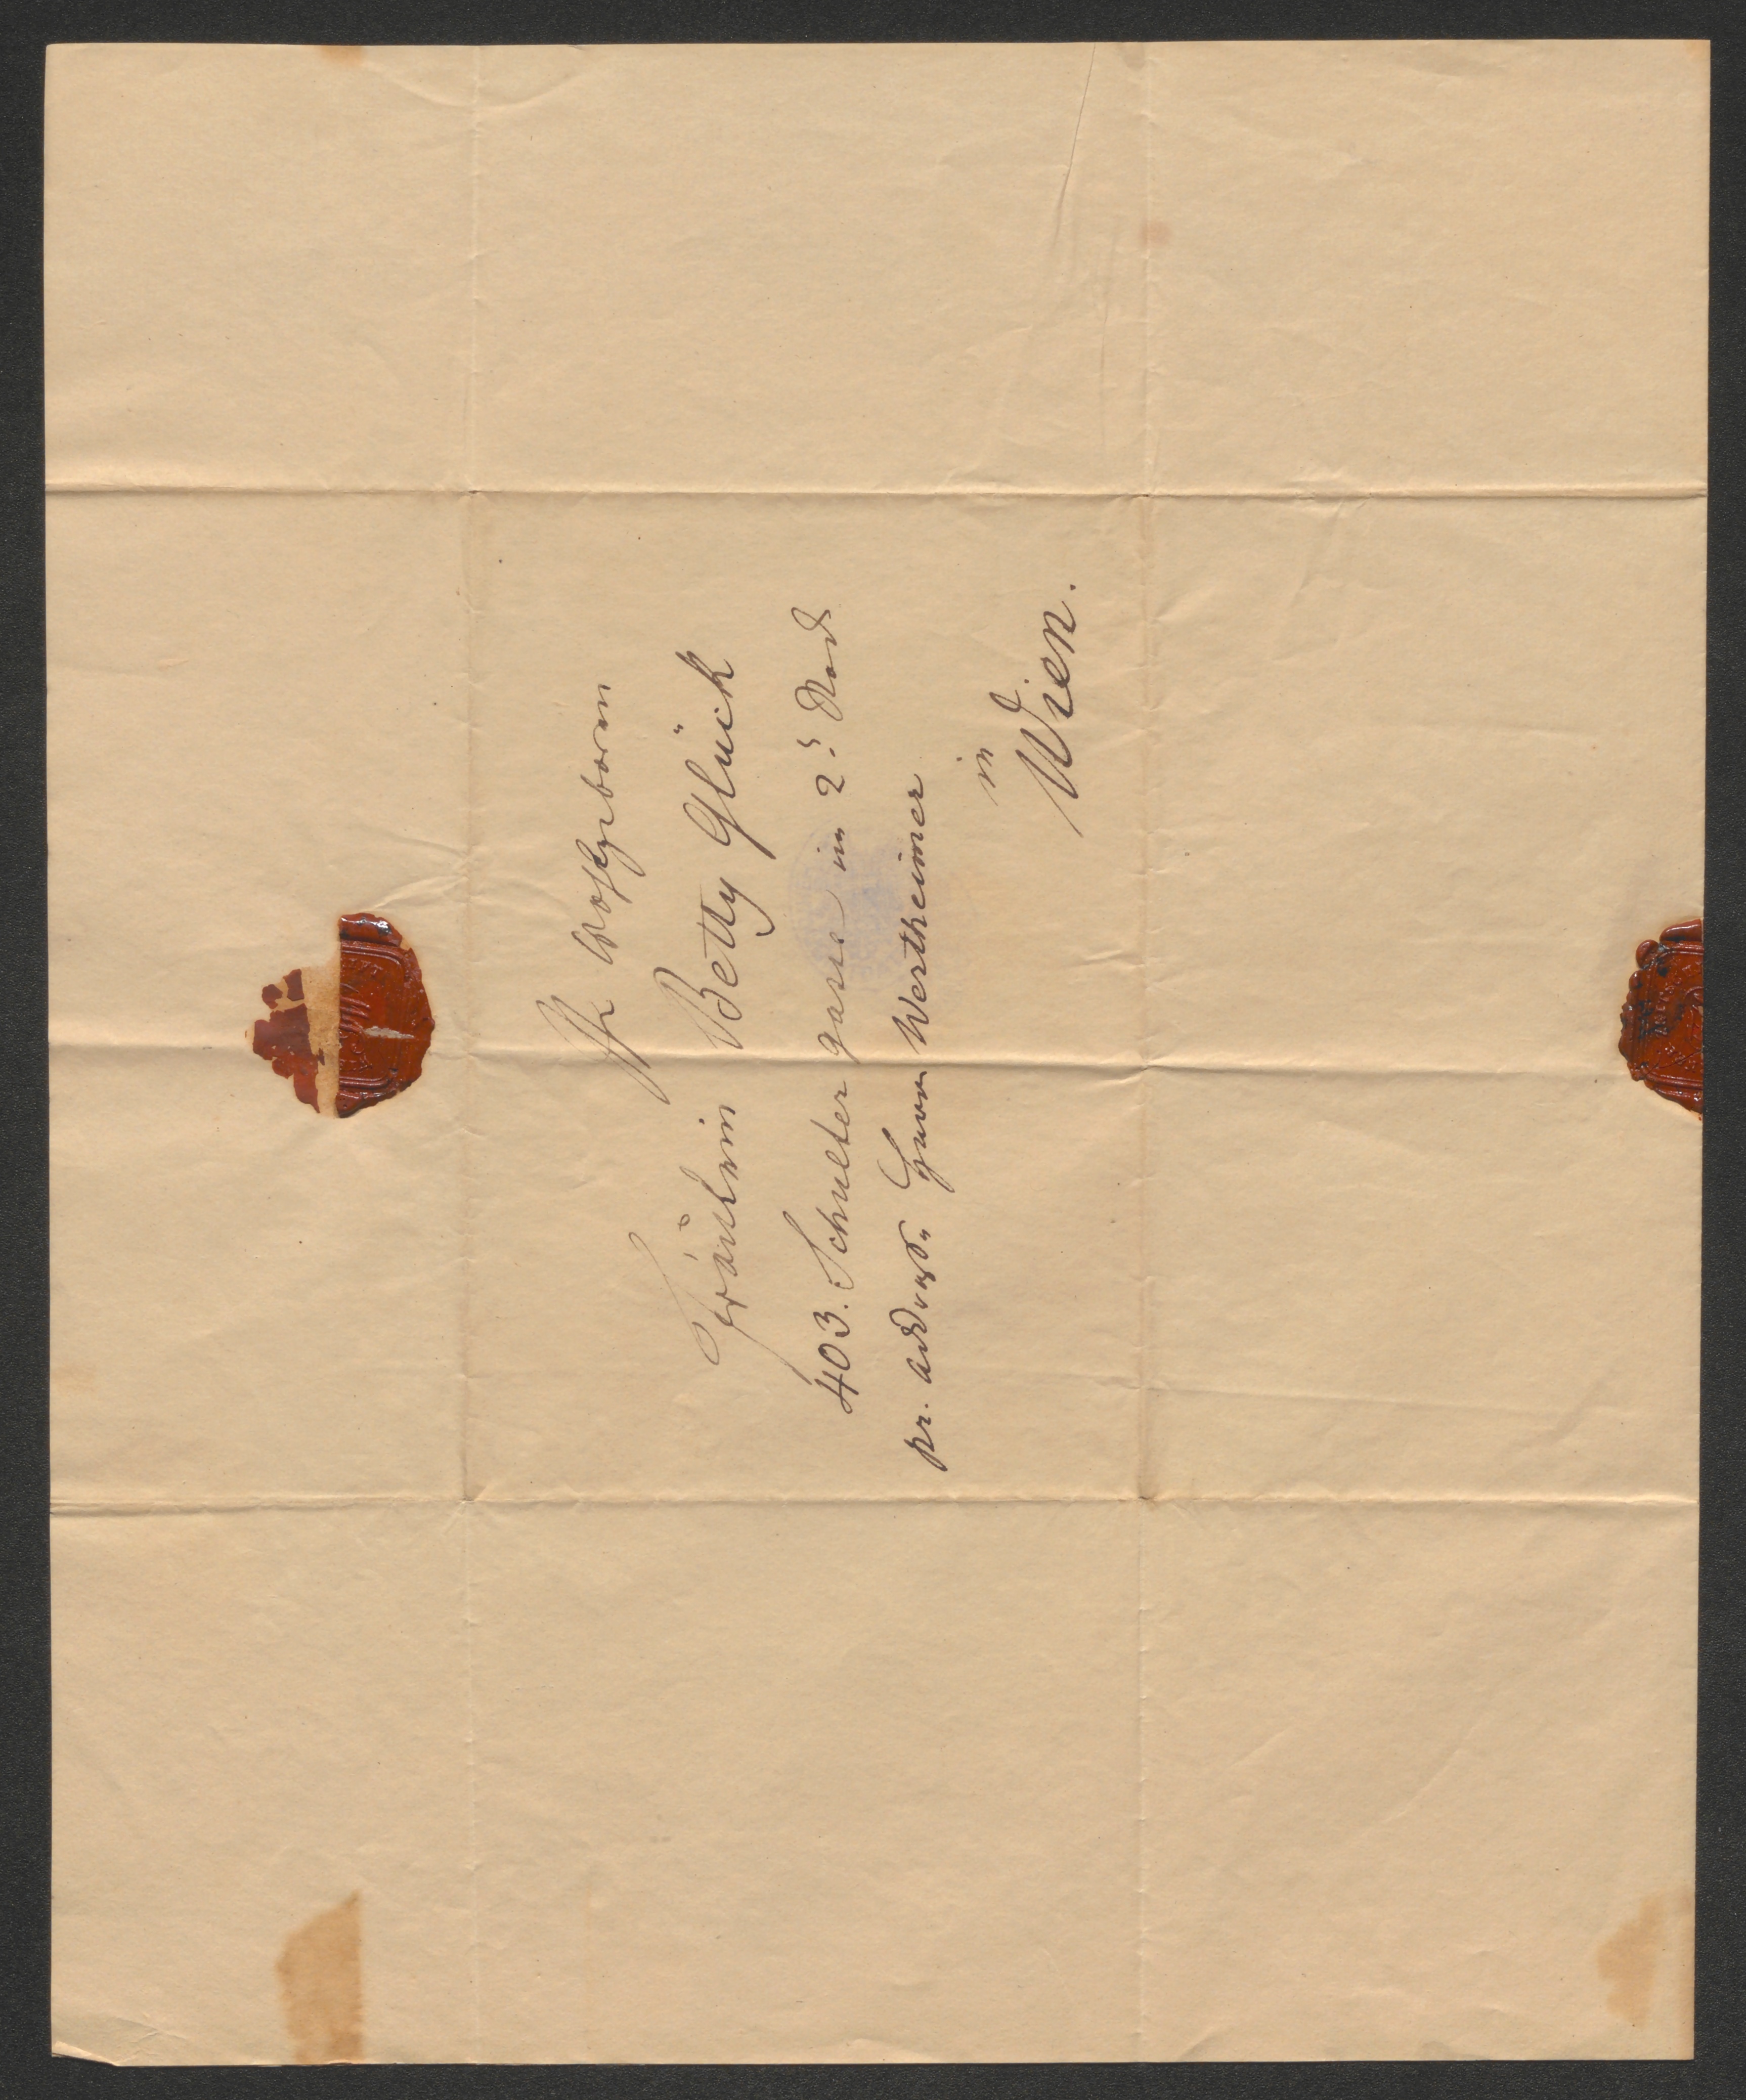 Ihr Wohlgeboren
Fräulein Betty Glück
403. Schulter gasse im 2
pr. adresse Herrn Wertheimer
in
Wien.